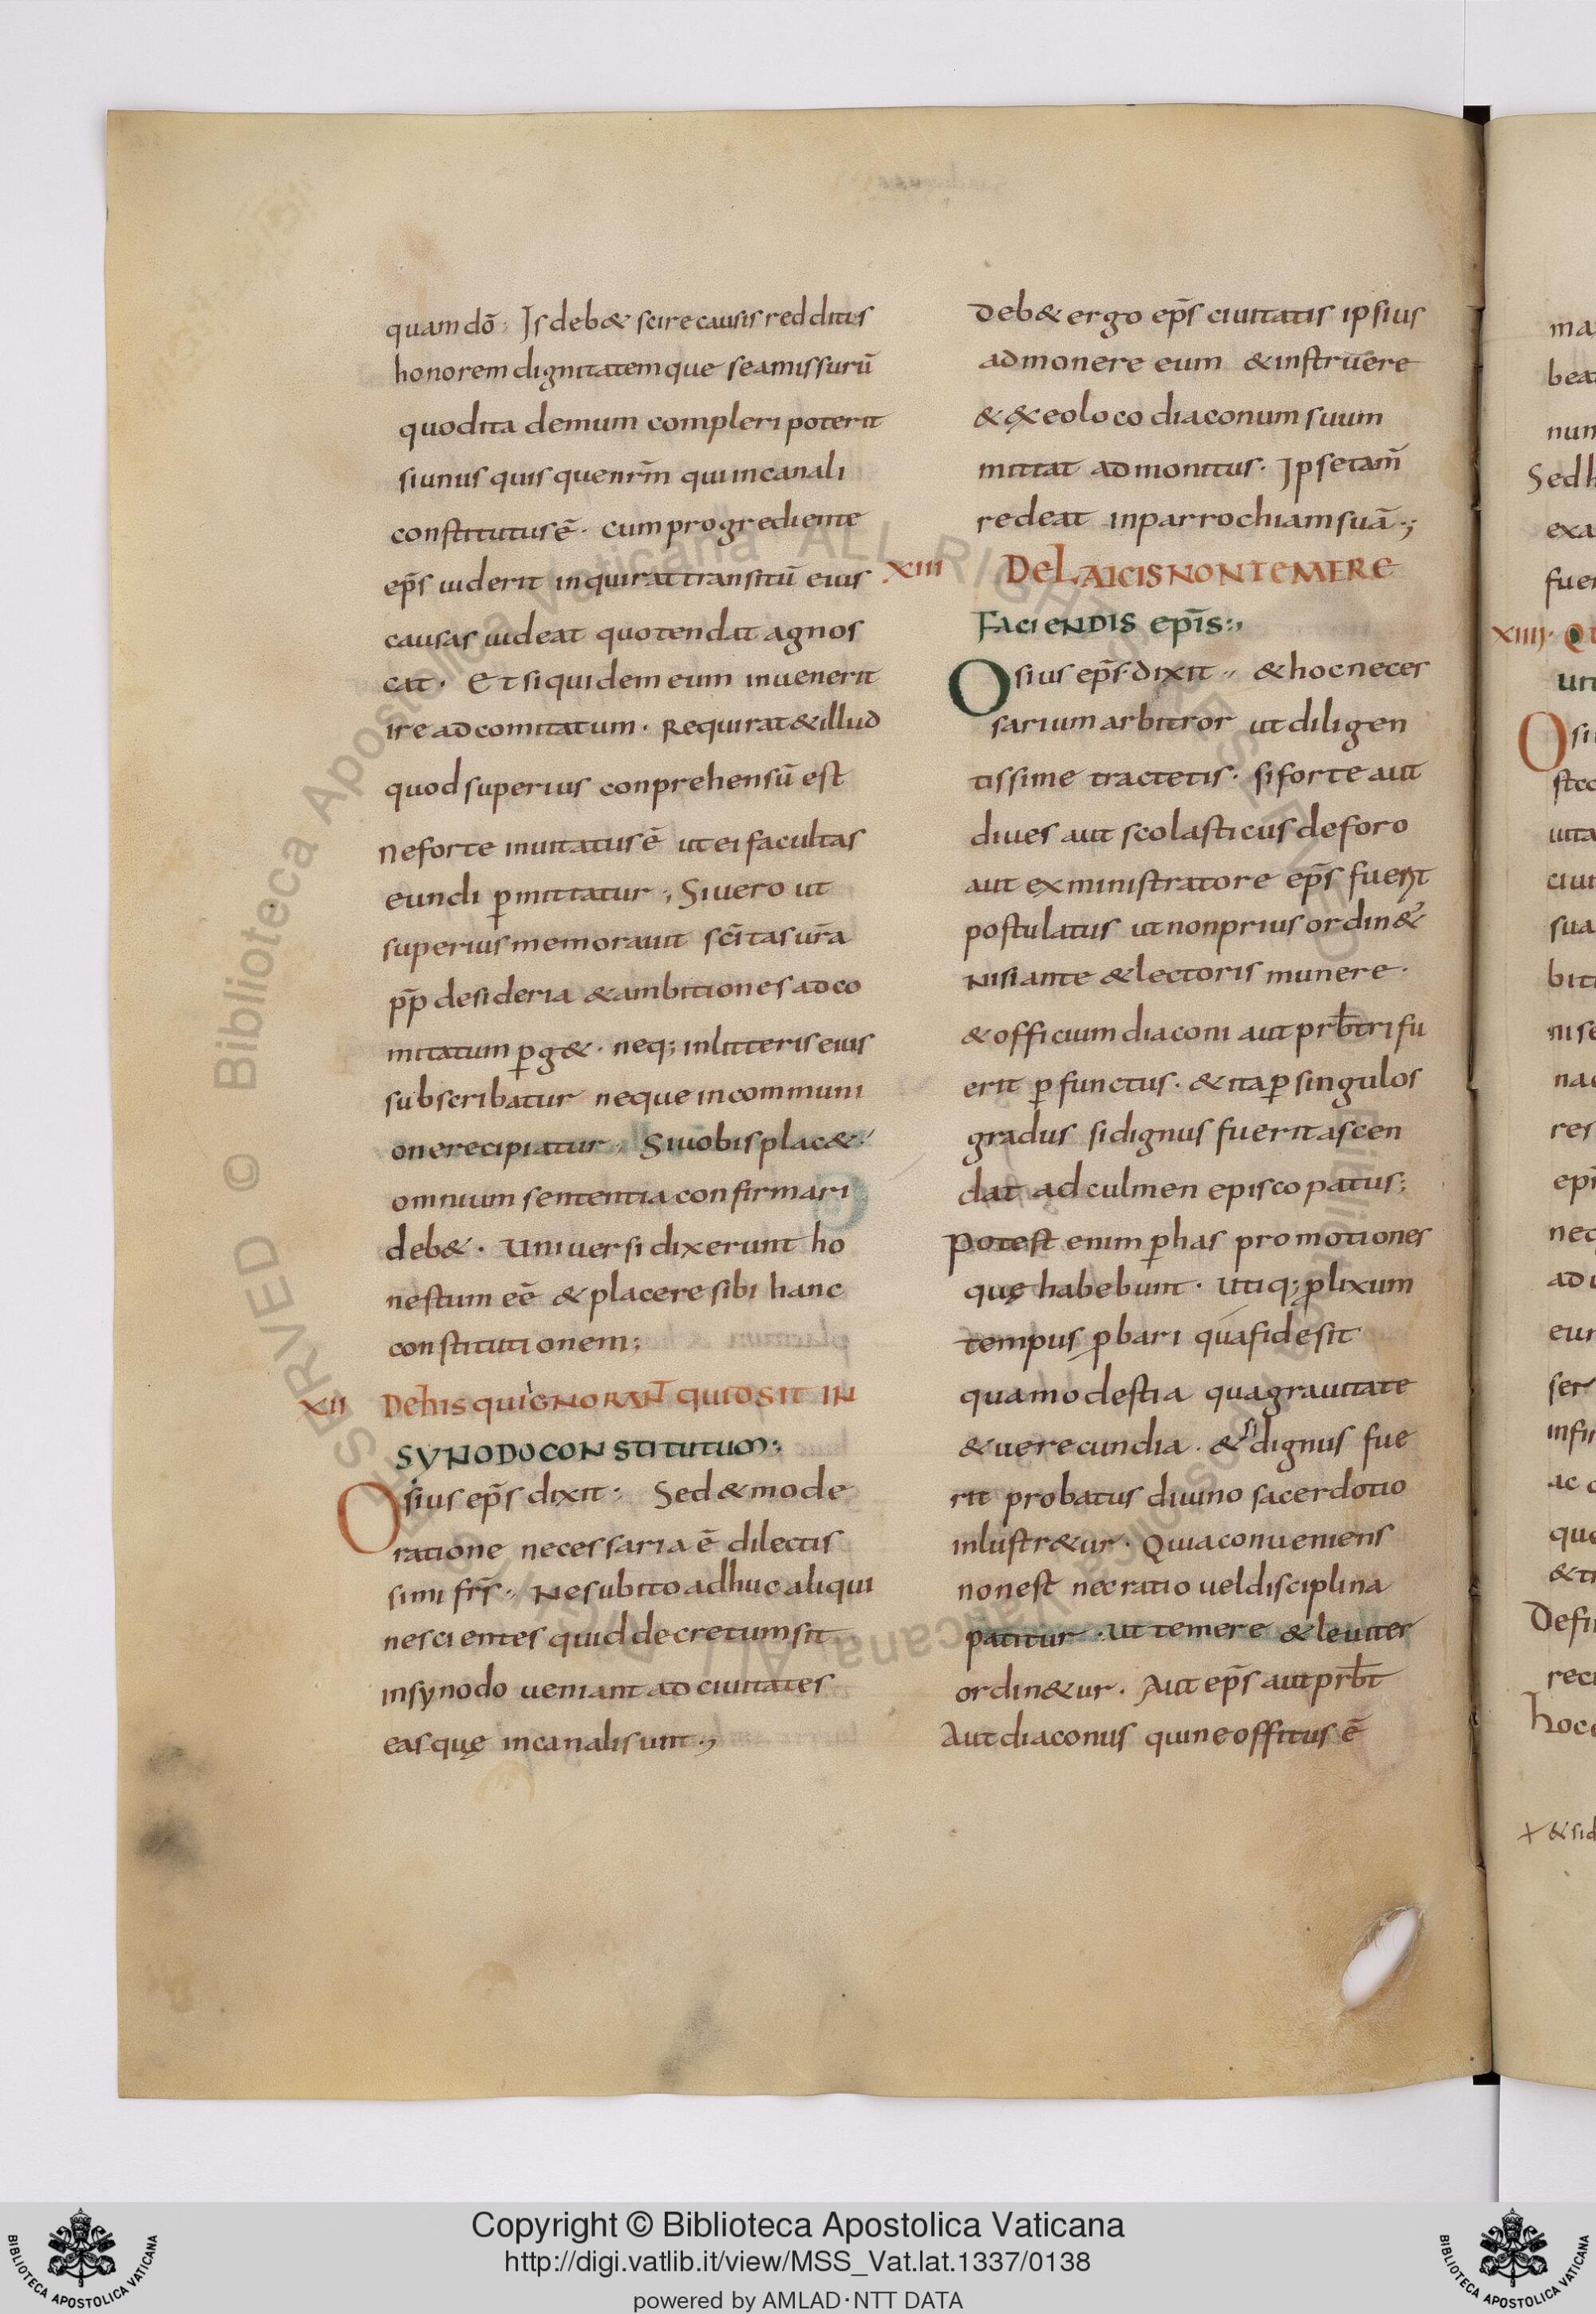 quam dō; Is deb& scire causis redditis
honorem dignitatem que se amissurū
quod ita demum compleri poterit
si unus quis que nr̄m qui in canali
constitutus ē. cum progrediente
ep̄s uiderit inquirat transitū eius
causas uideat quo tendat agnos
cat. Et si quidem eum inuenerit
ire ad comitatum. Requirat & illud
quod superius conprehensū est
ne forte inuitatus ē ut ei facultas
eundi ꝑmittatur; Si uero ut
superius memorauit sc̄itas ur̄a
pp̄ desideria & ambitiones ad co
mitatum ꝑg&. neq; in litteris eius
subscribatur neque in communi
one recipiatur; Si uobis plac&.
omnium sententia confirmari
deb&. Uniuersi dixerunt ho
nestum eē & placere sibi hanc
constitutionem;
XII De his qui ignorant quid sit in
synodo constitutum;
Osius ep̄s dixit; Sed & mode
ratione necessaria ē dilectis
simi fr̄s. Ne subito adhuc aliqui
nescientes quid decretum sit
in synodo ueniant ad ciuitates
eas quę in canali sunt;
Deb& ergo ep̄s ciuitatis ipsius
admonere eum & instruere
& ex eo loco diaconum suum
mittat admonitus. Ipse tam̄
redeat in parrochiam suā;
XIII De laicis non temere
faciendis ep̄is;
Osius ep̄s dixit; & hoc neces
sarium arbitror ut diligen
tissime tractetis. si forte aut
diues aut scolasticus de foro
aut ex ministratore ep̄s fuerit
postulatus ut non prius ordin&
Nisi ante & lectoris munere.
& officium diaconi aut prb̄tri fu
erit ꝑfunctus. & ita ꝑ singulos
gradus si dignus fuerit ascen
dat ad culmen episcopatus;
Potest enim ꝑ has promotiones
quę habebunt. Utiq; ꝓlixum
tempus ꝓbari qua fide sit
qua modestia qua grauitate
& uerecundia. & si dignus fue
rit probatus diuino sacerdotio
inlustr&ur. Quia conueniens
non est nec ratio uel disciplina
patitur. ut temere & leuiter
ordin&ur. Aut ep̄s aut prb̄t
Aut diaconus qui neoffitus ē
XIIII.
Copyright © Biblioteca Apostolica Vaticana
http://digi.vatlib.it/view/MSS_Vat.lat.1337/0138
powered by AMLAD·NTT DATA
BIBLIOTECA APOSTOLICA VATICANA
BIBLIOTECA APOSTOLICA VATICANA